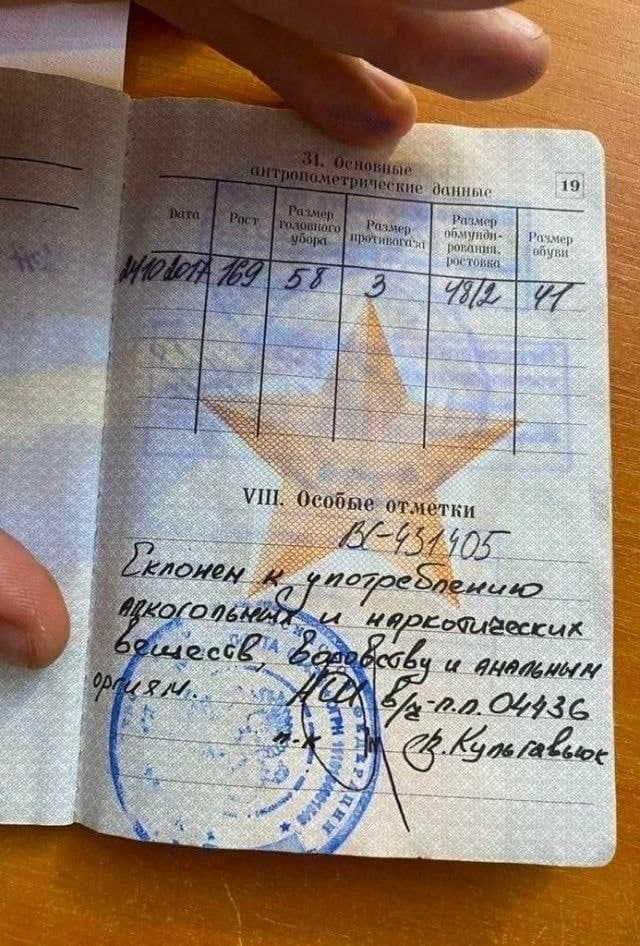 31. Основные
антропометрические данные
19
Дата Рост Размер головного убора Размер противогаза Размер обмунди-рования, ростовка Размер обуви
24102017 169 58 3 48/2 41
VIII. Особые отметки
ВС-431405
Склонен к употреблению
алкогольных и наркотических
веществ, воровству и анальным
оргиям. НШ в/ч-п.п. 04436
п-к С.В. Кульгавьюк